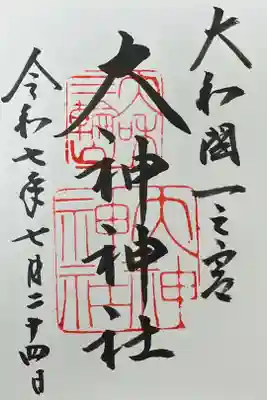 大和國一之宮
大神神社
令和七年七月二十四日
三輪山
大神神社